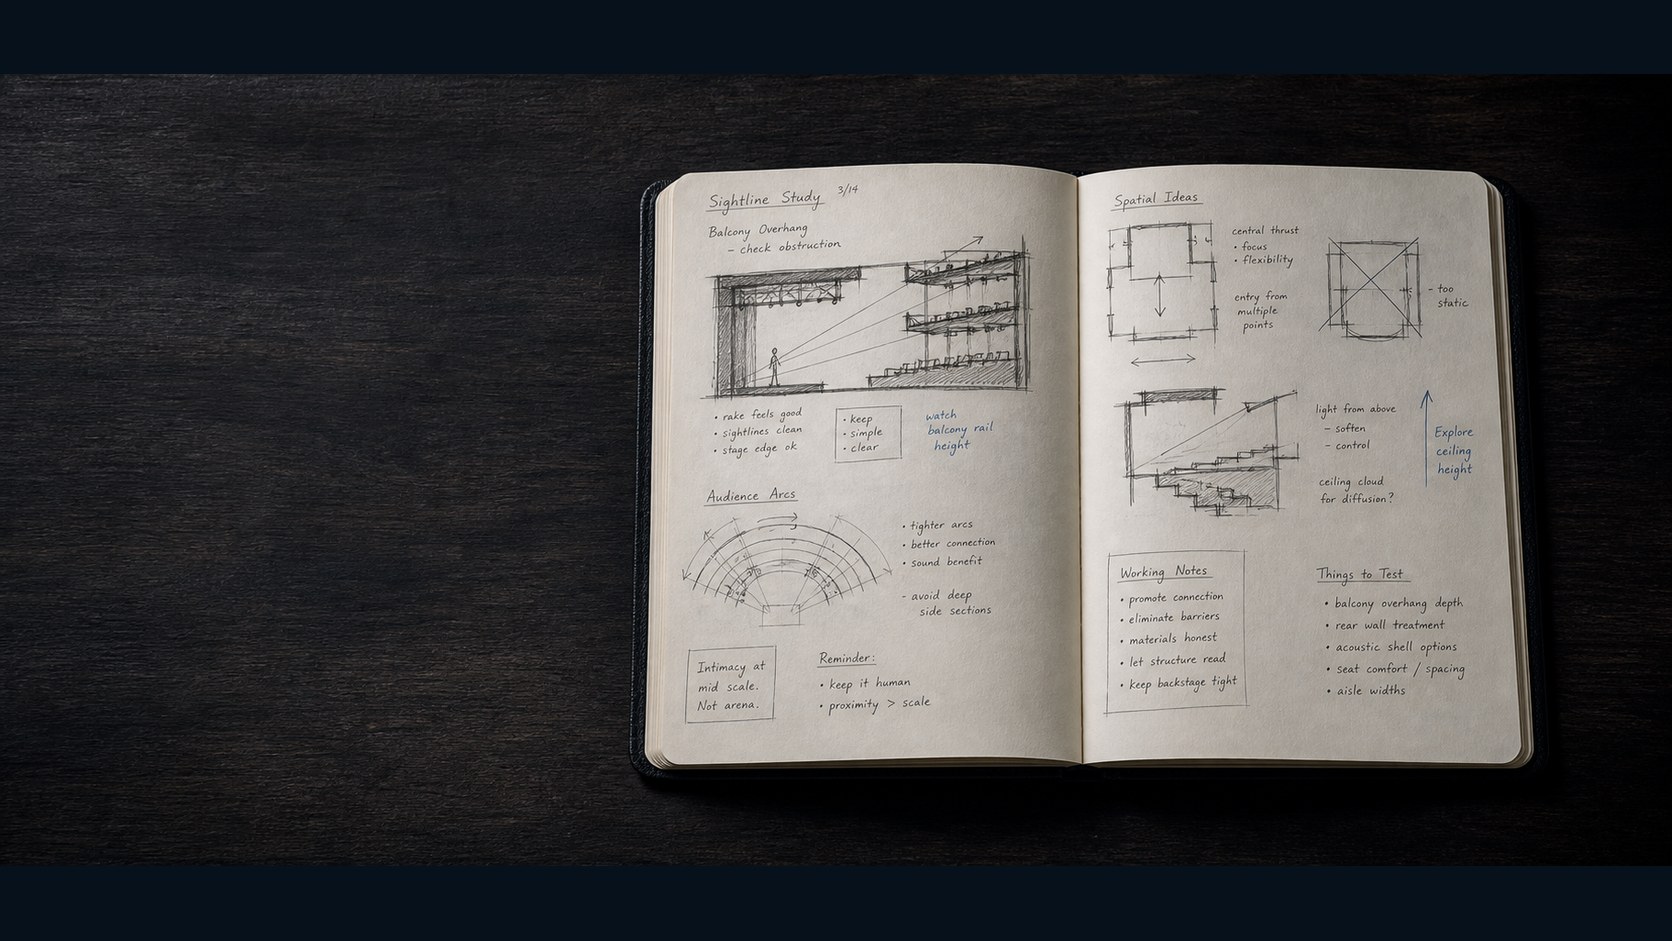 Sightline Study 3/14
Balcony Overhang
– check obstruction
• rake feels good
• sightlines clean
• stage edge ok
• keep
• simple
• clear
watch
balcony rail
height
Audience Arcs
• tighter arcs
• better connection
• sound benefit
– avoid deep
side sections
Intimacy at
mid scale.
Not arena.
Reminder:
• keep it human
• proximity > scale
Spatial Ideas
central thrust
• focus
• flexibility
entry from
multiple
points
– too
static
light from above
– soften
– control
ceiling cloud
for diffusion?
Explore
ceiling
height
Working Notes
• promote connection
• eliminate barriers
• materials honest
• let structure read
• keep backstage tight
Things to Test
• balcony overhang depth
• rear wall treatment
• acoustic shell options
• seat comfort / spacing
• aisle widths